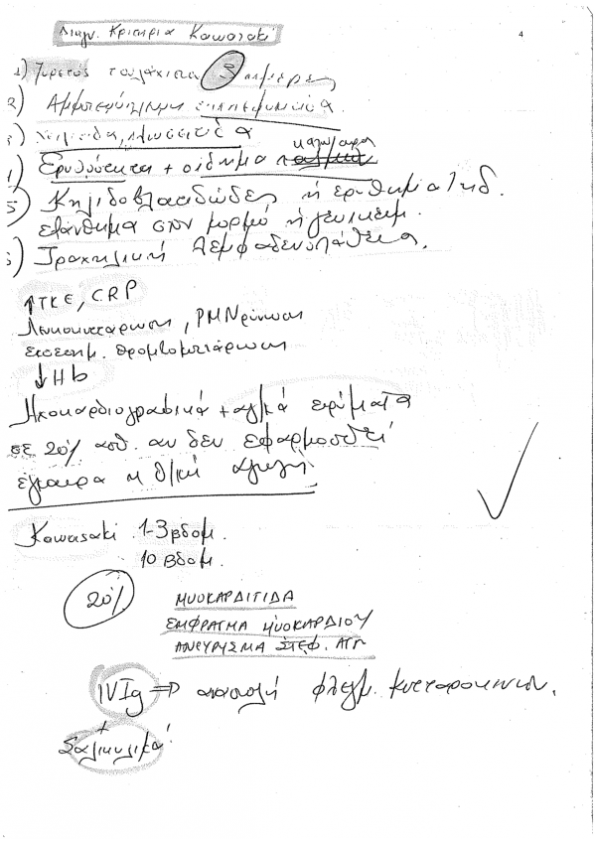 Διαγν. Κριτήρια Kawasaki
4
1) Πυρετός τουλάχιστο 5 ημέρες
2) Αμφοτερόπλευρη επιπεφυκίτιδα
3) Χειλίτιδα,
καλάμαρα
4) Ερυθρότητα + οίδημα
5) Κηλιδοβλατιδώδες ή ερυθηματώδ.
εξάνθημα στον κορμό ή γενικευμ.
6) Τραχηλική λεμφαδενοπάθεια.
↑ΤΚΕ, CRP
Λευκοκυττάρωση, PMN
θρομβοκυττάρωση
↓Hb
Ηχοκαρδιογραφικά + αγ/κά ευρήματα
σε 20% ασθ. αν δεν εφαρμοσθεί
έγκαιρα η θ/κή αγωγή
Kawasaki 1-3 βδομ.
10 βδομ.
20%
ΜΥΟΚΑΡΔΙΤΙΔΑ
ΕΜΦΡΑΓΜΑ ΜΥΟΚΑΡΔΙΟΥ
ΑΝΕΥΡΥΣΜΑ ΣΤΕΦ. ΑΓΓ
IVIg ⇒ καταστολή φλεγμ. κυτταροκινών.
+
Σαλικυλικά!